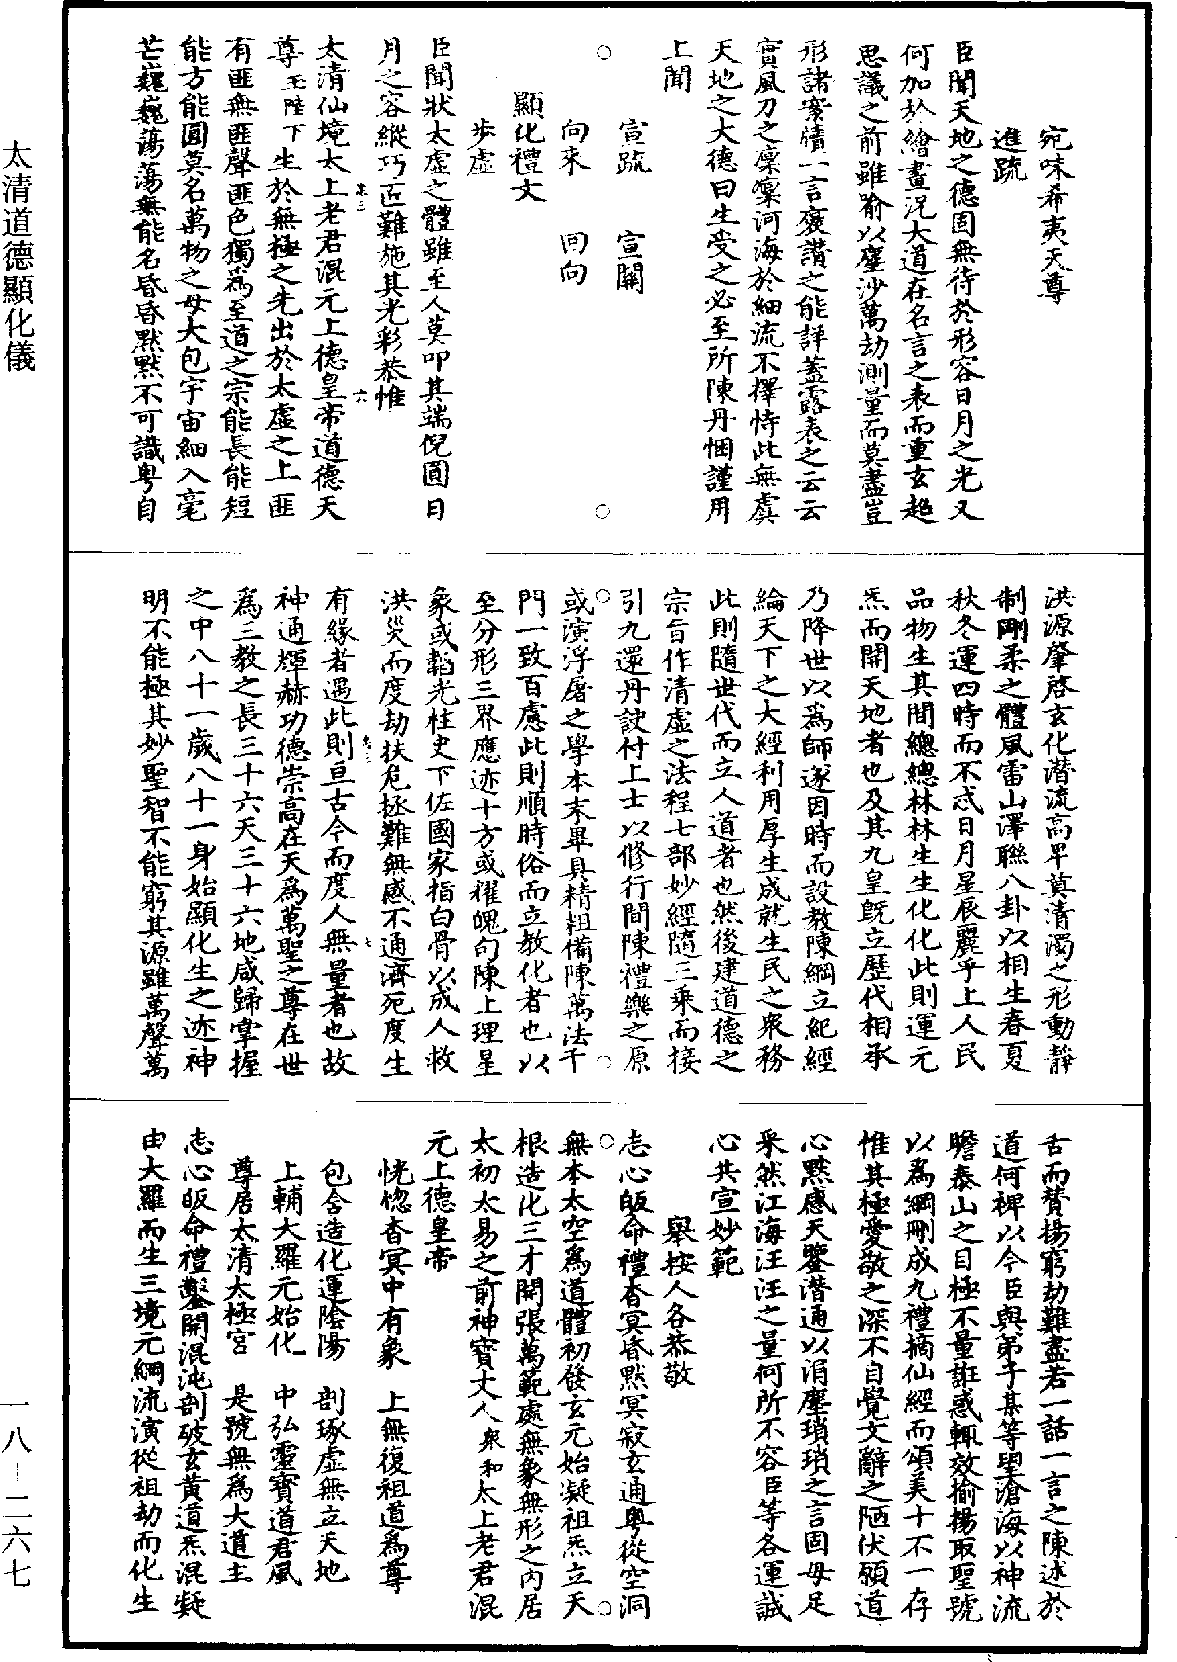 太清道德顯化儀
宛味希夷天尊
進疏
臣聞天地之德固無待於形容日月之光又
何加於繪畫況大道在名言之表而重玄超
思議之前雖喻以塵沙萬劫測量而莫盡豈
形諸寮牘一言褒讚之能詳蓋露表之云云
實風刀之凛凜河海於細流不擇恃此無虞
天地之大德曰生受之必至所陳丹悃謹用
上聞
宣疏 宣關
○ 向來 回向 ○
顯化禮文
步虛
臣聞狀太虛之體雖至人莫叩其端倪圓日
月之容縱巧匠難施其光彩恭惟
太清仙境太上老君混元上德皇帝道德天
尊玉陛下生於無極之先出於太虛之上匪
有匪無匪聲匪色獨為至道之宗能長能短
能方能圓莫名萬物之母大包宇宙細入毫
芒巍巍蕩蕩無能名昏昏默默不可識粵自
洪源肇啓玄化潛流高卑奠清濁之形動靜
制剛柔之體風雷山澤聯八卦以相生春夏
秋冬運四時而不忒日月星辰麗乎上人民
品物生其間總總林林生生化化此則運元
炁而開天地者也及其九皇既立歷代相承
乃降世以為師遂因時而設教陳綱立紀經
綸天下之大經利用厚生成就生民之衆務
此則隨世代而立人道者也然後建道德之
宗旨作清虛之法程七部妙經隨三乘而接
引九還丹訣付上士以修行間陳禮樂之原
○或演浮屠之學本末畢具精粗備陳萬法千○
門一致百慮此則順時俗而立教化者也以
至分形三界應迹十方或耀魄句陳上理星
象或韜光柱史下佐國家指白骨以成人救
洪災而度劫扶危拯難無感不通濟死度生
有緣者遇此則亘古今而度人無量者也故
神通輝赫功德崇高在天為萬聖之尊在世
為三教之長三十六天三十六地咸歸掌握
之中八十一歲八十一身始顯化生之迹神
明不能極其妙聖智不能窮其源雖萬聲萬
舌而贊揚窮劫難盡若一話一言之陳述於
道何裨以今臣與弟子某等望滄海以神流
瞻泰山之目極不量誑惑輒效揄揚取聖號
以為綱刪成九禮摘仙經而頌美十不一存
惟其極愛敬之深不自覺文辭之陋伏願道
心默感天鑒潛通以涓塵瑣瑣之言固毋足
采然江海汪汪之量何所不容臣等各運誠
心共宣妙範
舉按人各恭敬
志心皈命禮杳冥昏默冥寂玄通粵從空洞
○無本太空為道體初發玄元始凝祖炁立天○
根造化三才開張萬範處無象無形之內居
太初太易之前神寶丈人衆和太上老君混
元上德皇帝
恍惚杳冥中有象 上無復祖道為尊
包含造化運陰陽 剖琢虛無立天地
上輔大羅元始化 中弘靈寶道君風
尊居太清太極宮 是號無為大道主
志心皈命禮鑿開混沌剖破玄黃道炁混凝
由大羅而生三境元綱流演從祖劫而化生
一八—二六七